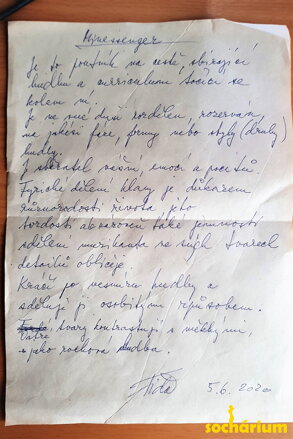 Je to poutník na cestě, sbírající
hudbu a curriculum točící se
kolem ní.
Je na své duši rozdělen, rozerván
na jakési fáze, formy nebo styly (druhy)
hudby.
Z sbíratel vášní, emocí a pocitů.
Fyzické dělení hlavy je důkazem
různorodosti života jeho
tvrdosti a zároveň také jemnosti
sdělení muzikanta ve svých tvarech
detailů obličeje.
Kráčí po vesmíru hudby a
sděluje ji osobitým způsobem.
Ostré tvary kontrastují s měkkými,
jako rocková hudba.
5.6. 2020
sochárium